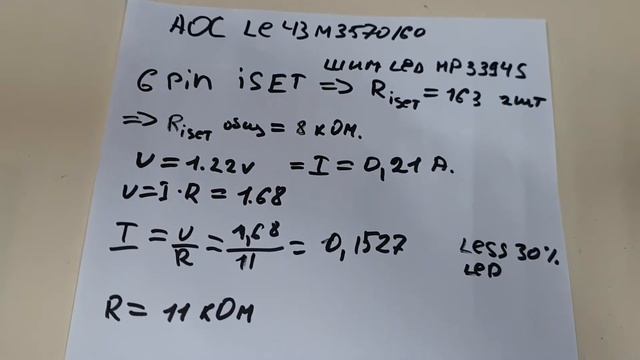 AOC LE43M3570/60
ШИМ LED MP3394S
6 pin iSET => Riset = 163 2шт
=> Riset общ = 8 кОм.
U = 1.22v = I = 0,21 A.
U = I·R = 1.68
I = U/R = 1,68/11 = 0,1527 Less 30% LED
R = 11 кОм